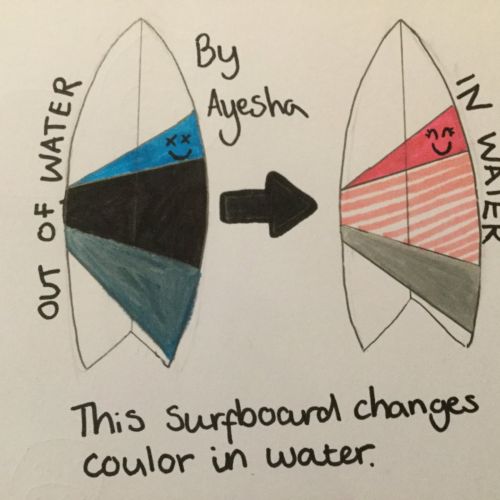 OUT OF WATER
By
Ayesha
IN WATER
This surfboard changes
coulor in water.